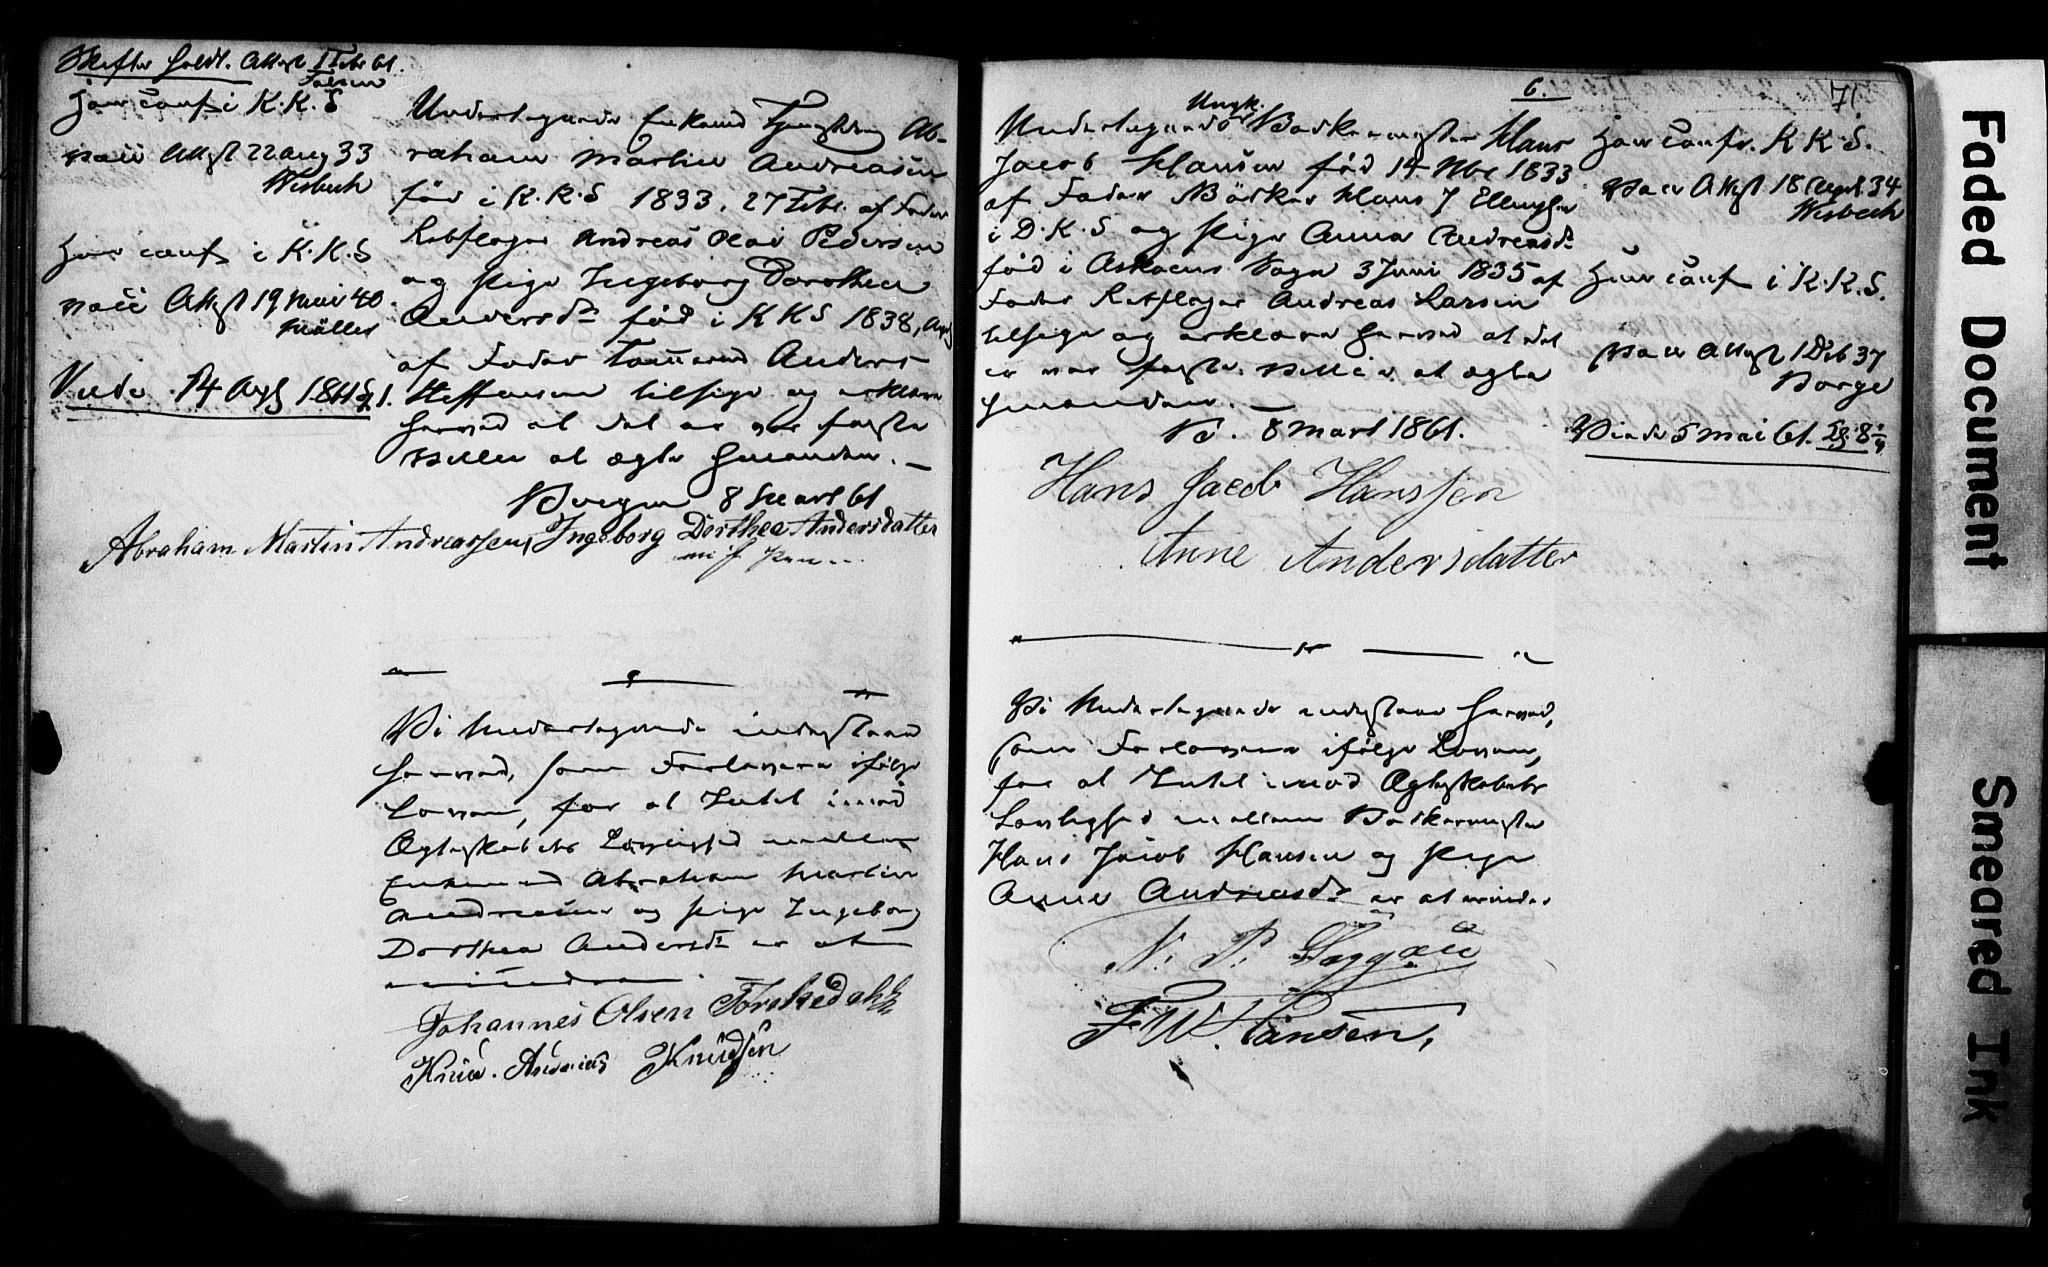 Skifte holdt. Attest 1 Febr 61.
Falsen
Han conf i K. K. S
vacc Attest 22 aug 33
Wisbech
Hun conf i K. K. S
vacc Attest 19 mai 40.
Møller
Viede 14
Undertegnede Enkemd Ab-
raham Martin Andreasen
fød i K. K. S 1833, 27 Febr. af Fader
Rebslager Andreas Olai Pedersen
og Pige Ingeborg Dorothea
Andersdr fød i K K S 1838,
af Fader Tømmermd Anders
Steffensen tilsige og erklære
herved at det er vor faste
Villie at ægte hinanden. —
Bergen 8 Mart 61
Abraham Martin Andreassen, Ingeborg Dorthea Andersdatter
m f Pen
Vi Undertegnede indestaae
herved, som Forlovere ifølge
Loven, for at Intet imod
Ægteskabets Lovlighed mellem
Enkemand Abraham Martin
Andreasen og Pige Ingeborg
Dorthea Andersdr er at
erindre.
Johannes Olsen
Knud. Andreas Knudsen
6.
71
Ungk.
Undertegnede Bødkermester Hans
Jacob Hansen fød 14 Nbr 1833
af Fader Bødker Hans J Ellingsen
i D. K. S og Pige Anna Andreasdr
fød i Askøens Sogn 3 Juni 1835 af
Fader Rebslager Andreas Larsen
tilsige og erklære herved at det
er vor faste Villie at ægte
hinanden. —
B. 8 Mart 1861.
Hans Jacob Hanssen
Anne Andersdatter
Han conf. K K S.
Vacc Attest 18 Sept 34
Wisbech
Hun conf i K. K. S.
Vacc Attest 1 Deb 37
Borge
Viede 5 mai 61.
Vi Undertegnede indestaae herved,
som Forlovere ifølge Loven,
for at Intet imod Ægteskabets
Lovlighed mellem Bødkermester
Hans Jacob Hansen og Pige
Anne Andreasdr er at erindre
N. P.
F. W. Hansen,
Faded Document
Smeared Ink